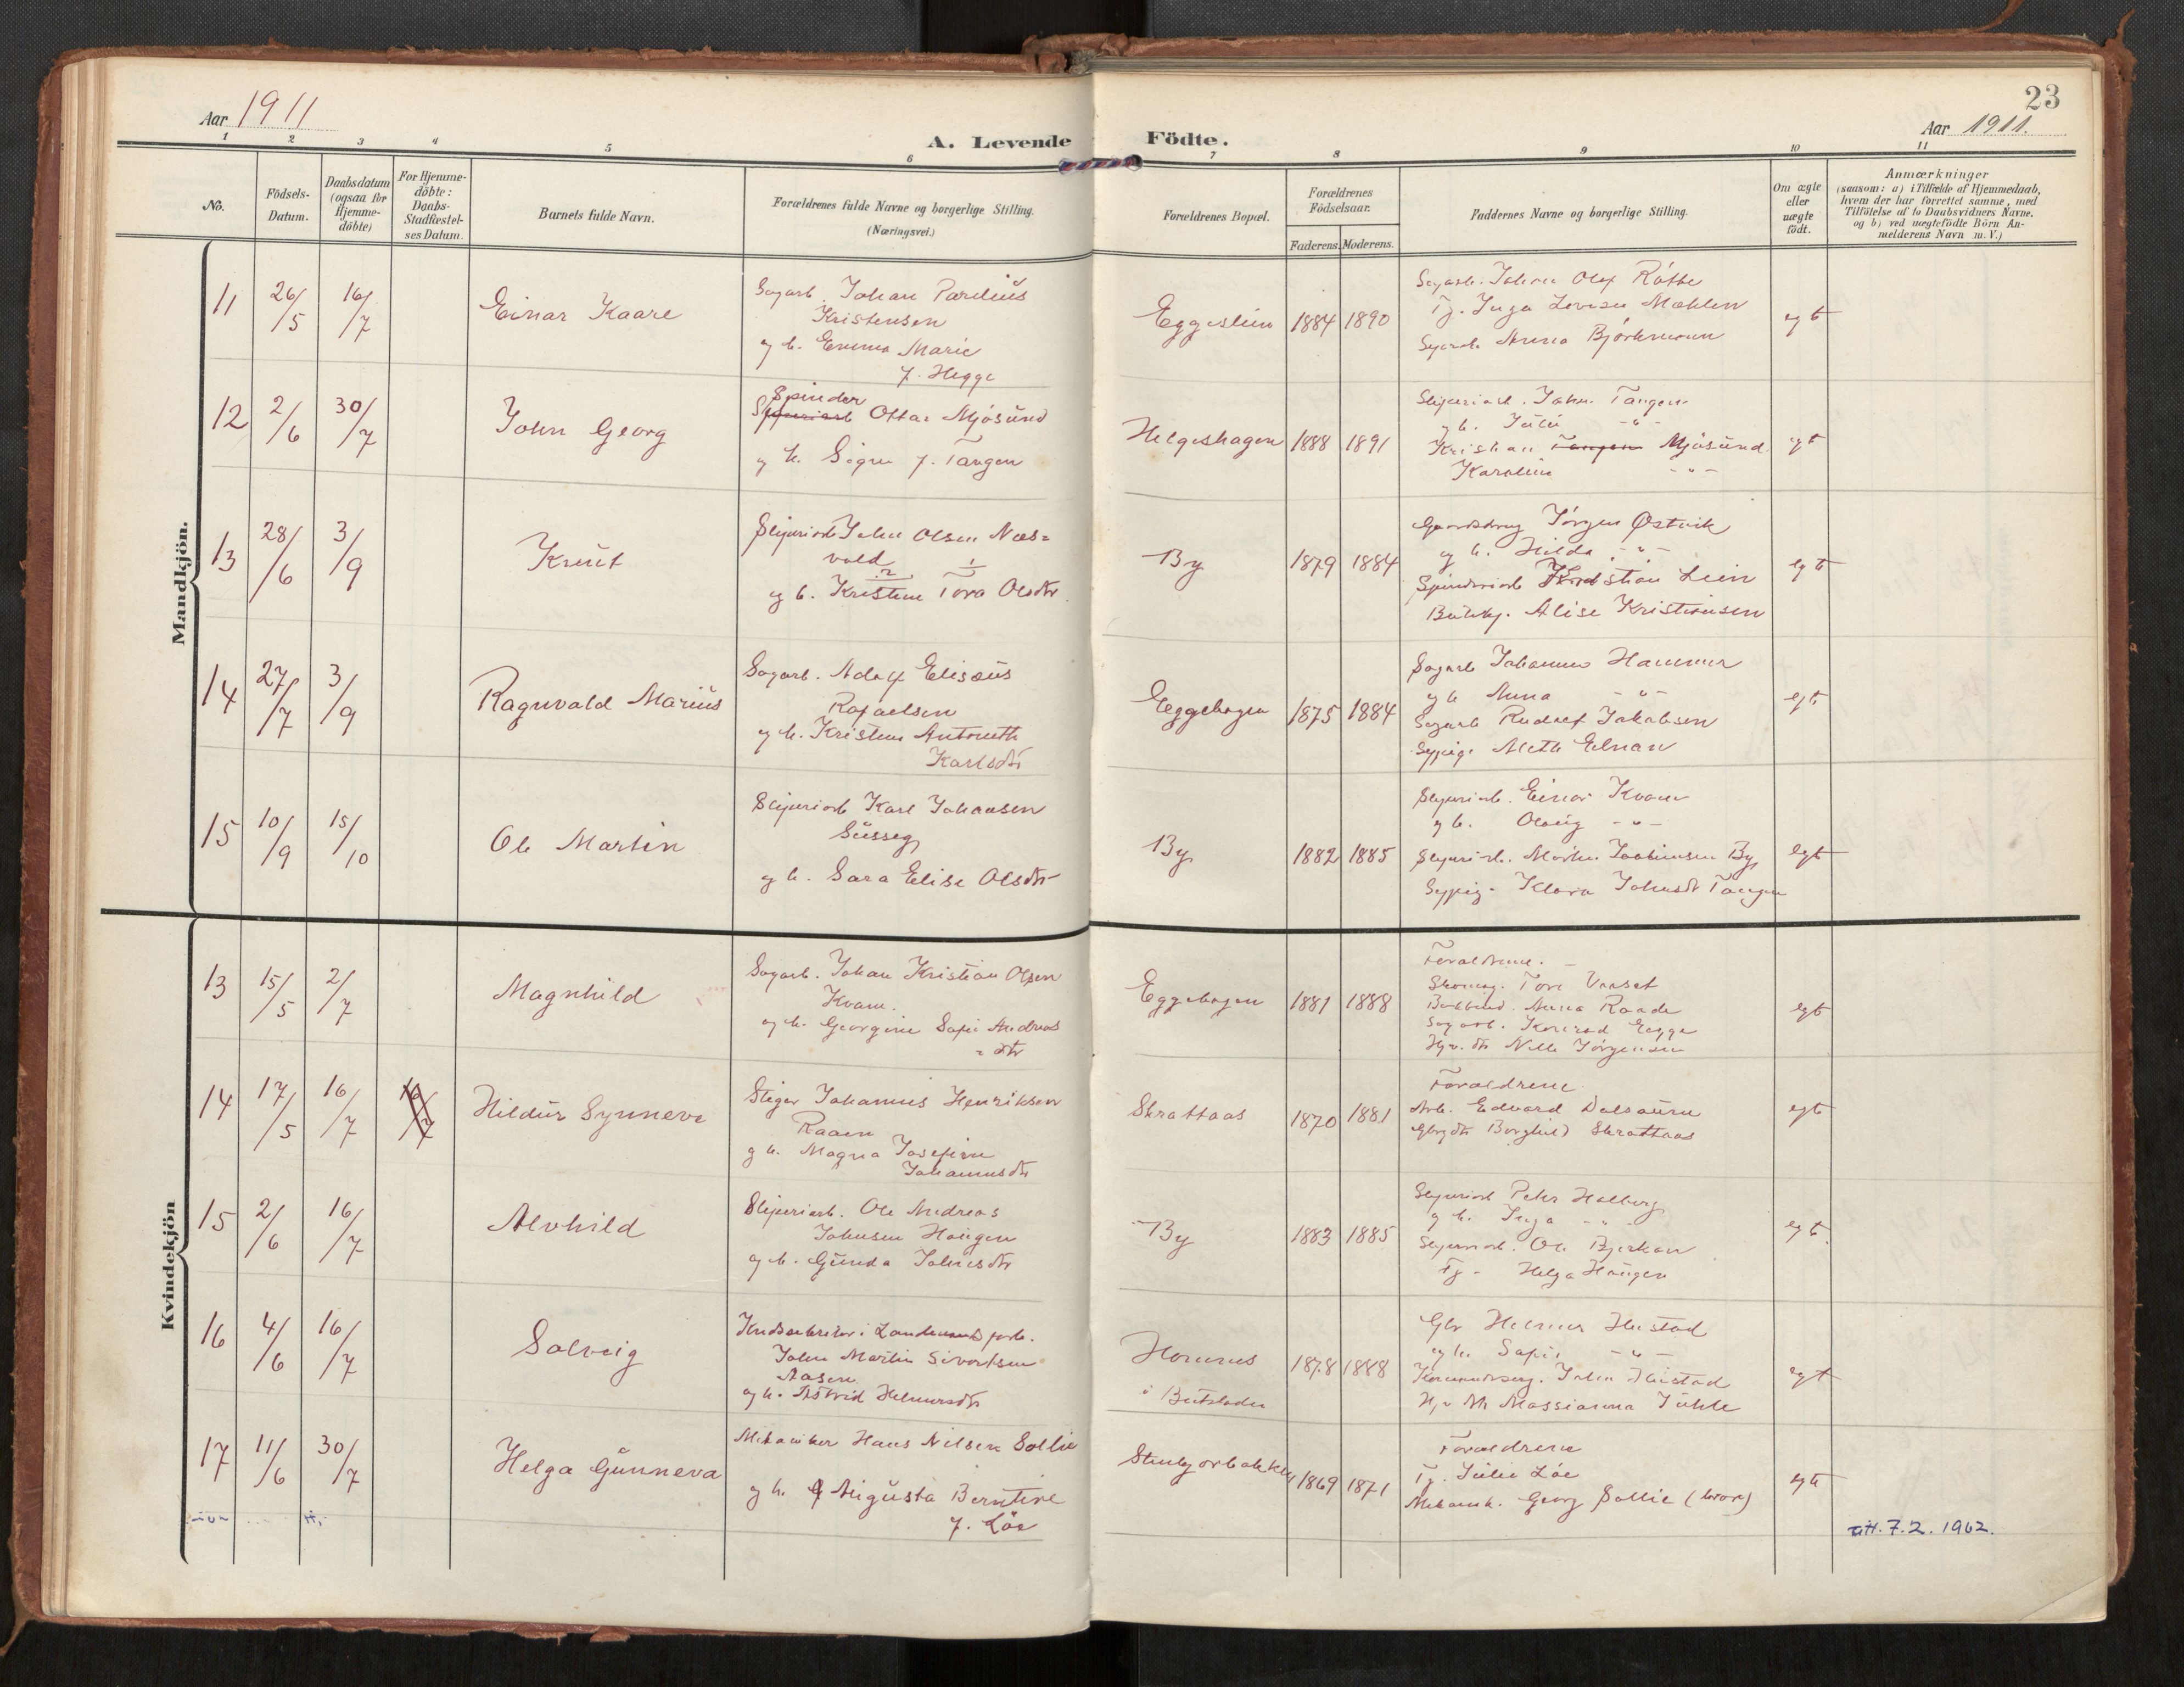 23
Aar 1911
Aar 1911.
A. Levende Födte.
1 2 3 4 5 6 7 8 9 10 11
No.
Födsels-
Datum.
Daabsdatum
(ogsaa for
Hjemme-
döbte)
For Hjemme-
döbte:
Daabs-
Stadfæstel-
ses Datum.
Barnets fulde Navn.
Forældrenes fulde Navne og borgerlige Stilling.
(Næringsvei.)
Forældrenes Bopæl.
Forældrenes
Födselsaar.
Faderens. Moderens.
Faddernes Navne og borgerlige Stilling.
Om ægte
eller
uægte
födt.
Anmærkninger
(saasom: a) i Tilfælde af Hjemmedaab,
hvem der har forrettet samme, med
Tilföielse af to Daabsvidners Navne,
og b) ved uægtefödte Börn An-
melderens Navn m. V.)
Mandkjön.
11 26/5 16/7 Einar Kaare
Sagarb. Johan Parelius
Kristensen
og h. Emma Marie
f. Hegge
1884 1890
Sagarb. Johan Olaf
Tj. Inga Mæhlen
Anna Björkmann
egt
12 2/6 30/7 John Georg
Spinder
Ottar Mjösund
og h. Signe f. Tangen
Helgeshagen 1888 1891
Sliperiarb. John Tangen
og h. Julie -"-
Kristian Tangen Mjösund
Karoline -"-
egt
13 28/6 3/9 Knut
Sliperiarb John Olsen Næs=
vold
2 1
og h. Kristine Tora Olsdtr.
By 1879 1884
Jörgen Østvik
og h. Hilda -"-
Spinderiarb Kristian Lein
Alise Kristiansen
egt
14 27/7 3/9 Ragnvald Marius
Sagarb. Adolf Elisæus
Rafaelsen
og h. Kristine Antonette
Karlsdtr
Eggehagen 1875 1884
Sagarb Johannes Hammer
og h Anna -"-
Sagarb Rudolf Jakobsen
Sypige Meth
egt.
15 10/9 15/10 Ole Martin
Sliperiarb Karl Johansen
Susseg
og h. Sara Elise Olsdtr
By 1882 1885
Sliperiarb. Einar Kvam
og h. Olovig -"-
Sliperiarb. By
Sypig. Klara Johnsdt Tangen
egt
Kvindekjön
13 15/5 2/7 Magnhild
Sagarb. Johan Kristian Olsen
Kvam.
og h. Georgine Sofie Andreas
=dtr
Eggehagen 1881 1888
Forældrene. -
Skomag. Tore Vaaset
Anna Raade
Sagarb. Konrad Egge
Nelle Jörgensen
egt
14 17/5 16/7 16/7 Hildur Synneve
Stiger Johannes Henriksen
Raaen
og h. Magna Josefine
Johannesdtr
Skrattaas 1870 1881
Forældrene
Arb. Edvard Dalsaune
Borghild Skrattaas
egt
15 2/6 16/7 Alvhild
Sliperiarb. Ole Andreas
Johnsen Haugen
og h. Gunda Johnsdtr
By 1883 1885
Sliperiarb Peter Halberg
og h. Inga -"-
Sliperiarb. Ole Bjerkan
Tj - Helga Haugen
egt.
16 4/6 16/7 Solveig
John Martin Sivertsen
Aasen
og h. Astrid Helmersdtr
i Beitstaden
1878 1888
Gbr Helmer Hustad
og h. Sofie -"-
John Hustad
Massianna
egt
17 11/6 30/7 Helga Gunneva
Mekaniker Hans Nilsen Sollie
og h. Augusta Berntine
f. Löe
Stenbjorbakken 1869 1871
Forældrene
Tj. Julie Löe
Mekanik. Georg Sollie
egt
att. 7.2.1962.